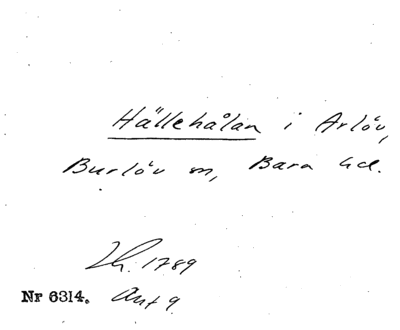 Hällehålan i Arlöv,
Burlöv sn, Bara hd.
Lh. 1789
Nr 6314. Ant 9